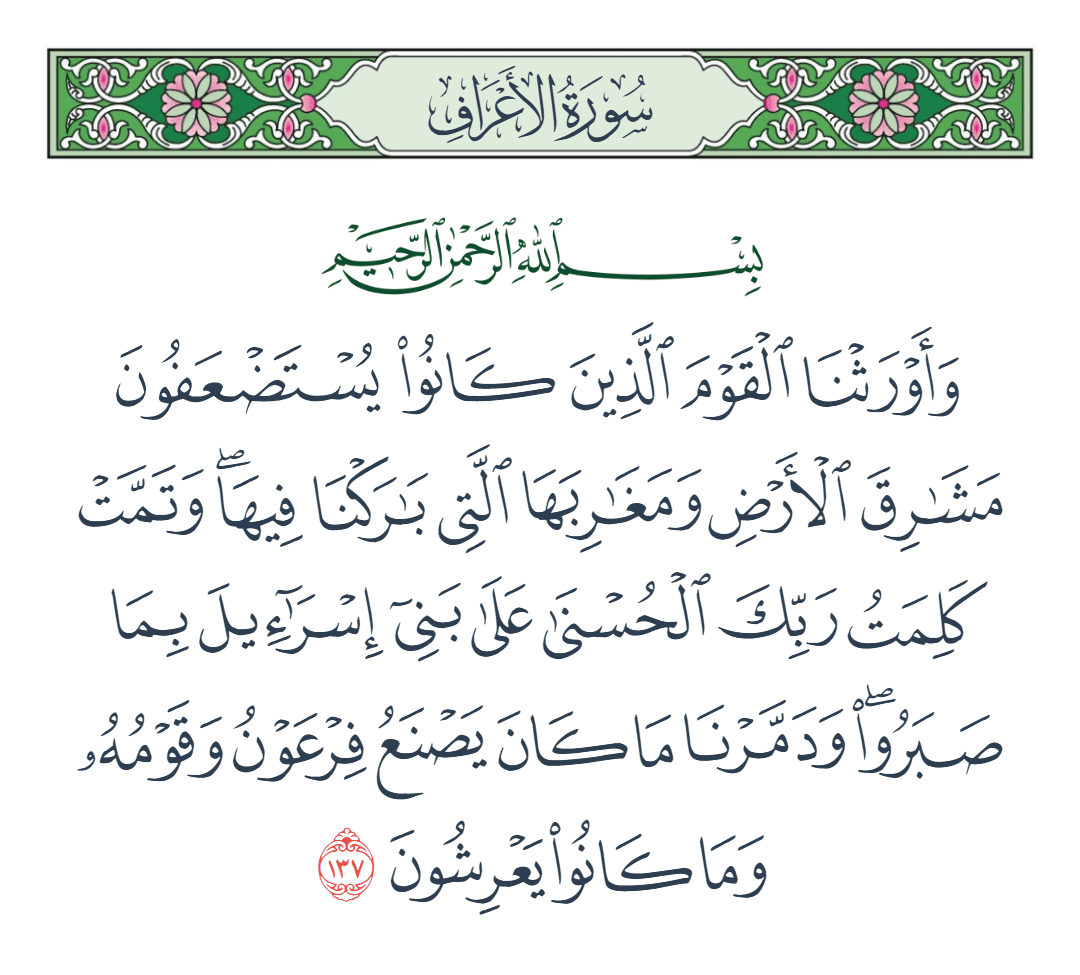 سُورَةُ الأَعۡرَافِ
بِسۡمِ ٱللَّهِ ٱلرَّحۡمَٰنِ ٱلرَّحِيمِ
وَأَوۡرَثۡنَا ٱلۡقَوۡمَ ٱلَّذِينَ كَانُواْ يُسۡتَضۡعَفُونَ
مَشَٰرِقَ ٱلۡأَرۡضِ وَمَغَٰرِبَهَا ٱلَّتِي بَٰرَكۡنَا فِيهَاۖ وَتَمَّتۡ
كَلِمَتُ رَبِّكَ ٱلۡحُسۡنَىٰ عَلَىٰ بَنِيٓ إِسۡرَٰٓءِيلَ بِمَا
صَبَرُواْۖ وَدَمَّرۡنَا مَا كَانَ يَصۡنَعُ فِرۡعَوۡنُ وَقَوۡمُهُۥ
وَمَا كَانُواْ يَعۡرِشُونَ ١٣٧